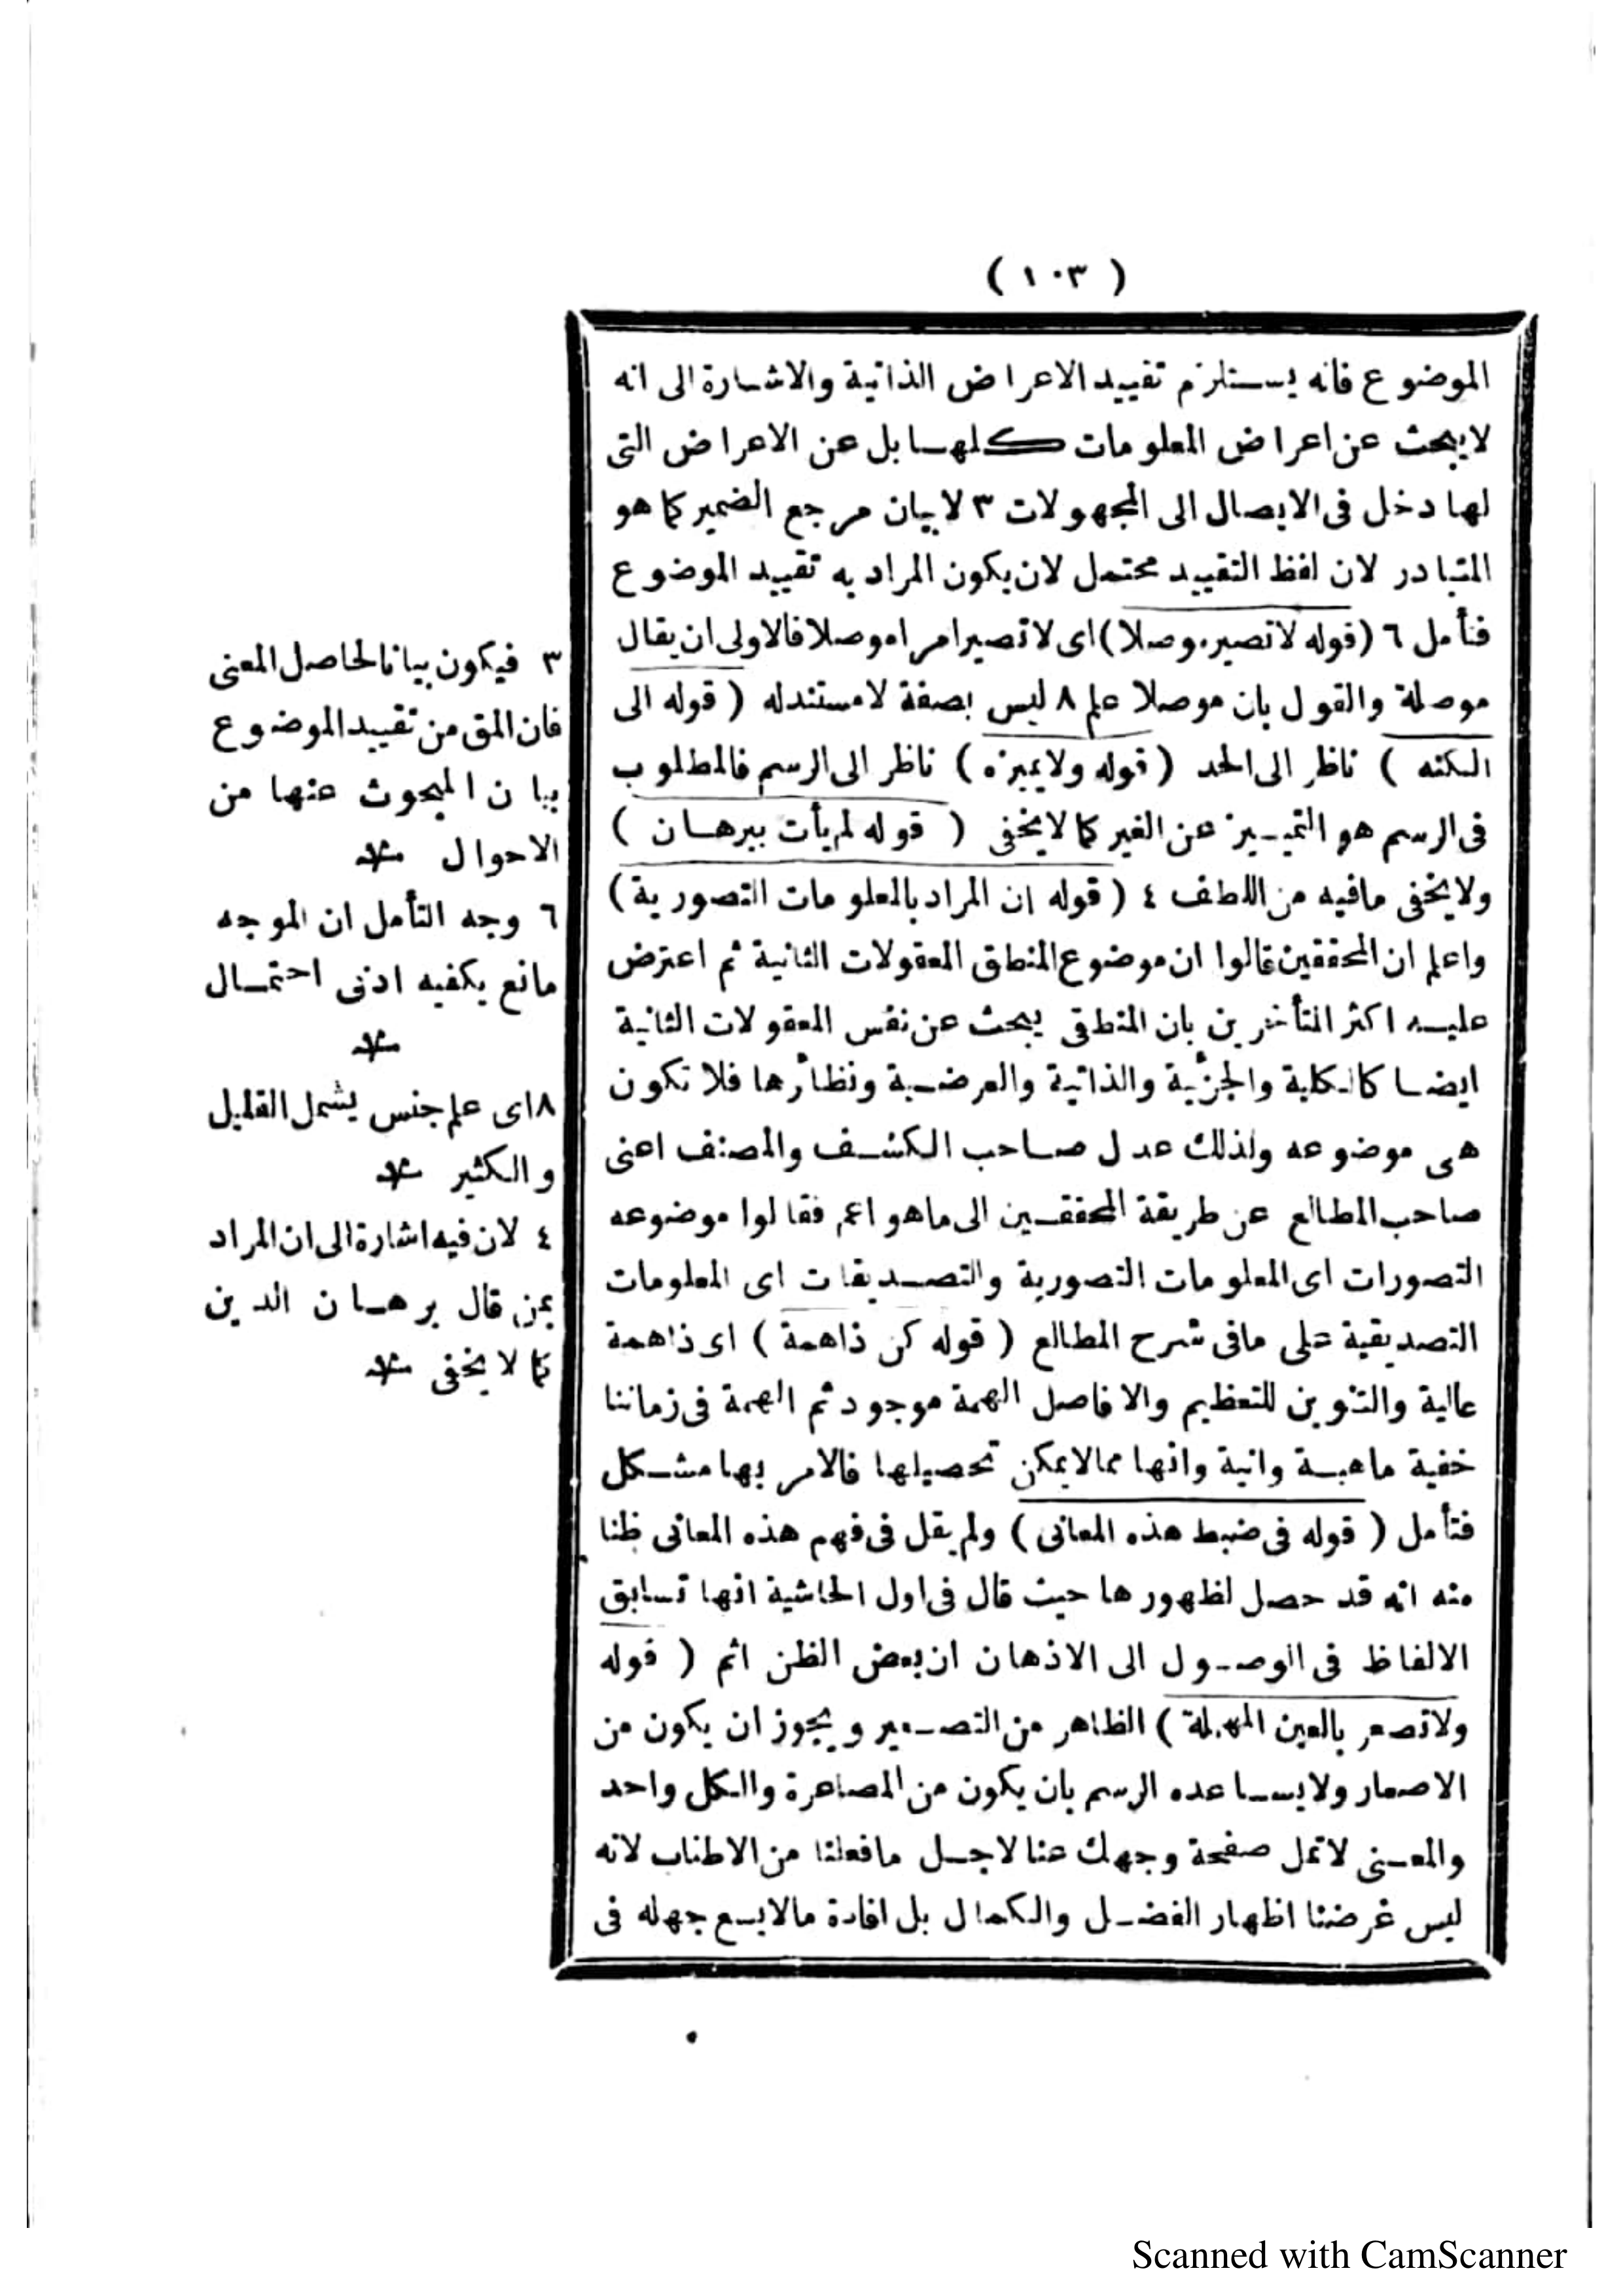 ( ١٠٣ )
الموضوع فانه يستلزم تقييد الاعراض الذاتية والاشارة الى انه
لا يبحث عن اعراض المعلومات كلها بل عن الاعراض التى
لها دخل فى الايصال الى المجهولات ٣ لا بيان مرجع الضمير كما هو
المتبادر لان لفظ التقييد محتمل لان يكون المراد به تقييد الموضوع
فتأمل ٦ (قوله لا تصير موصلا) اى لا تصير امرا موصلا فالاولى ان يقال
موصلة والقول بان موصلا علم ٨ ليس بصفة لا مستند له ( قوله الى
الكنه ) ناظر الى الحد ( قوله ولا يميزه ) ناظر الى الرسم فالمطلوب
فى الرسم هو التمييز عن الغير كما لا يخفى ( قوله لم يأت ببرهان )
ولا يخفى ما فيه من اللطف ٤ ( قوله ان المراد بالمعلومات التصورية )
واعلم ان المحققين قالوا ان موضوع المنطق المعقولات الثانية ثم اعترض
عليه اكثر المتأخرين بان المنطقى يبحث عن نفس المعقولات الثانية
ايضا كالكلية والجزئية والذاتية والعرضية ونظائرها فلا تكون
هى موضوعه ولذلك عدل صاحب الكشف والمصنف اعنى
صاحب المطالع عن طريقة المحققين الى ما هو اعم فقالوا موضوعه
التصورات اى المعلومات التصورية والتصديقات اى المعلومات
التصديقية على ما فى شرح المطالع ( قوله كن ذاهمة ) اى ذاهمة
عالية والتنوين للتعظيم والا فاصل الهمة موجود ثم الهمة فى زماننا
خفية ماهية وانية وانها مما لا يمكن تحصيلها فالامر بها مشكل
فتأمل ( قوله فى ضبط هذه المعانى ) ولم يقل فى فهم هذه المعانى ظنا
منه انه قد حصل لظهورها حيث قال فى اول الحاشية انها تسابق
الالفاظ فى الوصول الى الاذهان ان بعض الظن اثم ( قوله
ولا تصعر بالعين المهملة ) الظاهر من التصعير ويجوز ان يكون من
الاصعار ولا يساعده الرسم بان يكون من المصاعرة والكل واحد
والمعنى لا تمل صفحة وجهك عنا لاجل ما فعلنا من الاطناب لانه
ليس غرضنا اظهار الفضل والكمال بل افادة ما لا يسع جهله فى
٣ فيكون بيانا لحاصل المعنى
فان المق من تقييد الموضوع
بيان المبحوث عنها من
الاحوال
٦ وجه التأمل ان الموجه
مانع يكفيه ادنى احتمال
٨ اى علم جنس يشمل القليل
والكثير
٤ لان فيه اشارة الى ان المراد
بمن قال برهان الدين
كما لا يخفى
Scanned with CamScanner